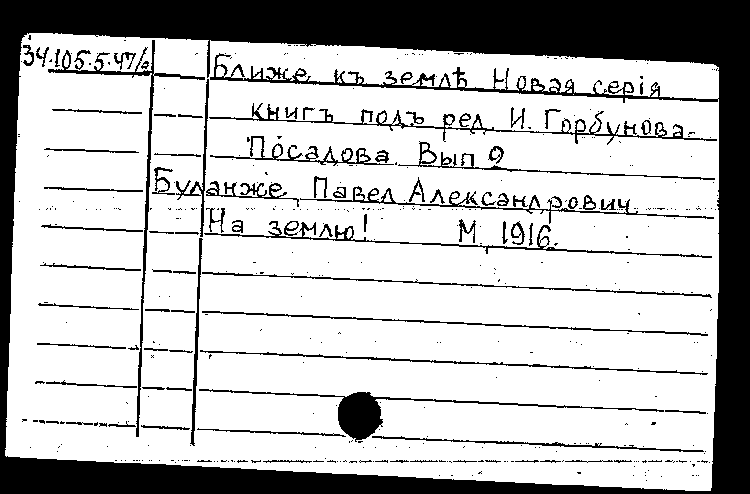 34.105.5.47/a
Ближе къ землѣ Новая серія
книгъ подъ ред. И. Горбунова-
Посадова. Вып 9
Буланже, Павел Александрович
На землю! М, 1916.